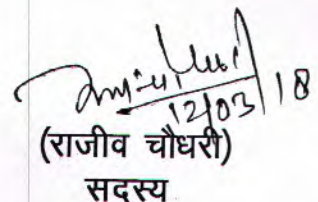 12/03/18
(राजीव चौधरी)
सदस्य